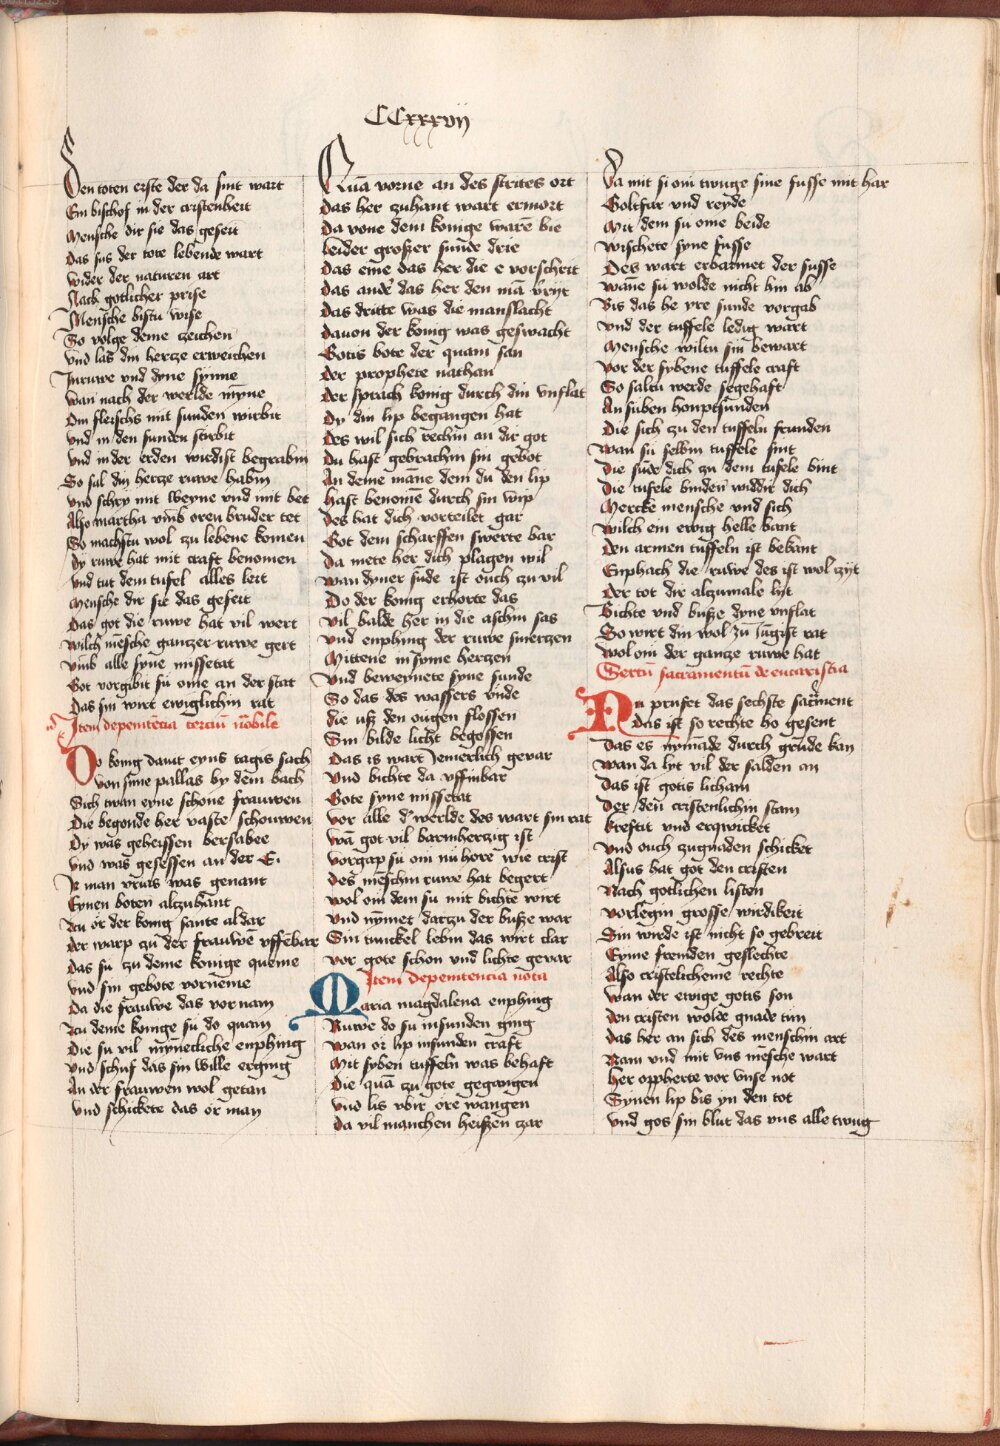 CCxxxvij
Den toten erste der da sint wart
Ein bischof in der cristenheit
Mensche dir sie das geseit
Das sus der tote lebende wart
Wider der naturen art
Nach gotlicher prise
Mensche bistu wise
So volge deme zeichen
Vnd las din hercze erweichen
In ruwe vnd dyne synne
Wan nach der werlde mȳne
Din fleischs mit sunden wirbit
Vnd in den sunden stirbit
Vnd in der erden wirdist begrabin
So sal din hercze ruwe habin
Vnd schry mit weyne vnd mit bet
Also martha vm̄b oren bruder tet
So machstu wol zu lebene komen
Dy ruwe hat mit craft benomen
Vnd tut dem tufel alles leit
Mensche dir sie das geseit
Das got die ruwe hat vil wert
Wilch mēsche ganzer ruwe gert
Vm̄b alle syne missetat
Got vorgibit sū ome an der stat
Das sin wirt ewiglichin rat
Item de penitēcia terciū nōbile
Do konig dauit eyns tagis sach
Von sime pallas by dem bach
Sich twan eyne schone frauwen
Die begonde her vaste schouwen
Dy was geheissen bersabee
Vnd was gesessen an der E.
Ir man vrias was genant
Eynen boten alczuhant
Zcu ōr der konig sante aldar
Der warp zu der frauwē vffēbar
Das su zu deme konige queme
Vnd sin gebote vorneme
Da die frauwe das vornam
Zcu deme konige su do quam
Die su vil mȳnecliche enphing
Vnd schuf das sin wille erging
An der frauwen wol getan
Vnd schickete das ōr man
Quā vorne an des strites ort
Das her zuhant wart ermort
Da vone dem konige warē bie
Leider großer sunde drie
Das eine das her die e vorschrit
Das ande͛ das her den mā vͥriet
Das dritte was die manslacht
Dauon der konig was geswacht
Gotis bote der quam san
Der prophete nathan
Der sprach konig durch din vnflat
Dy din lip begangen hat
Des wil sich rechin an dir got
Du hast gebrachin sin gebot
An deme māne dem du den lip
Hast benome durch sin wip
Des hat dich vorteilet gar
Got dem scharffen swerte bar
Da mete her dich plagen wil
Wan dyner sūde ist ouch zu vil
Do der konig erhorte das
Vil balde her in die aschin sas
Vnd enphing der ruwe smerzen
Mittene in syme herzen
Vnd beweynete syne sunde
So das des wassers vnde
Die uß den ougen flossen
Sin bilde licht begossen
Das is wart iemerlich gevar
Vnd bichte da vffinbar
Gote syne missetat
Vor alle d͛ werlde des wart sin rat
Wā got vil barmherzig ist
Vorgap su om nū hore wie crist
Des mēschin ruwe hat begert
Wol om dem su mit bichte wirt
Vnd nȳmet darzu der buße war
Sin tunckel lebin das wirt clar
Vor gote schon vnd lichte gevar
Item de penitencia nota
Maria magdalena enphing
Ruwe do su in sunden ging
Wan ōr lip in sunden craft
Mit syben tuffeln was behaft
Die quā zu gote gegangen
Vnd lis vbir ōre wangen
Da vil manchen heißen czar
Da mit si om twuge sine fusse mit har
Goltfar vnd reyde
Mit dem su ome beide
Wischete syne fusse
Des wart erbarmet der susse
Wāne su wolde nicht hin ab
Bis das he yre sunde vorgab
Vnd der tuffele ledig wart
Mensche wiltu sin bewart
Vor der sybene tuffele craft
So saltu werde segehaft
An suben houptsunden
Die sich zu den tuffeln frunden
Wan su selbin tuffele sint
Die sūde dich zu dem tufele bint
Die tufele binden widdir dich
Mercke mensche vnd sich
Wilch ein ewig helle bant
Den armen tuffeln ist bekant
Enphach die ruwe des ist wol zyt
Der tot dir alzumale lyt
Bichte vnd buße dyne vnflat
So wirt din wol zū iūgist rat
Wol om der ganze ruwe hat
Sextū sacramentū de eucaristia
Nu prufet das sechste sacrment
Das ist so rechte ho gesent
Das es nȳmāde durch grūde kan
Wan da lyt vil der salden an
Das ist gotis licham
Der den cristenlichin stam
Kreftit vnd erqwicket
Vnd ouch zu gnaden schicket
Alsus hat got den cristen
Nach gotlichen listen
Vorlegin grosse wirdikeit
Sin wirde ist nicht so gebreit
Eyme fremden geslechte
Also cristelicheme rechte
Wan der ewige gotis son
Den cristen wolde gnade tun
Das her an sich des menschin art
Nam vnd mit vns mēsche wart
Her oppherte vor vnse not
Synen lip bis yn den tot
Vnd gos sin blut das vns alle twug